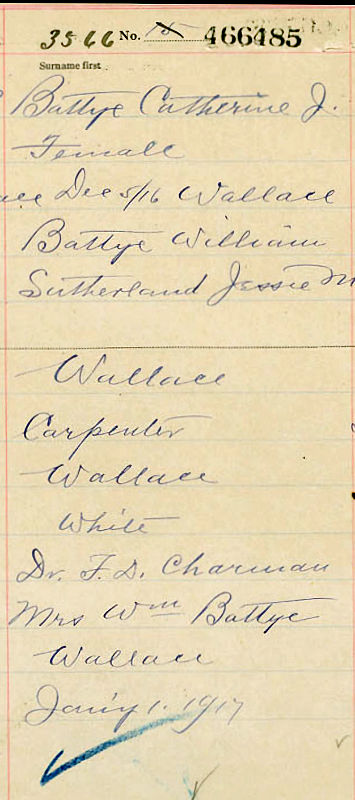 3566 No. 15 466485
Surname first
Battye Catherine J.
Female
Dec 5/16 Wallace
Battye William
Sutherland Jessie M
Wallace
Carpenter
Wallace
White
Dr. F. D. Charman
Mrs Wm Battye
Wallace
Jan'y 1. 1917